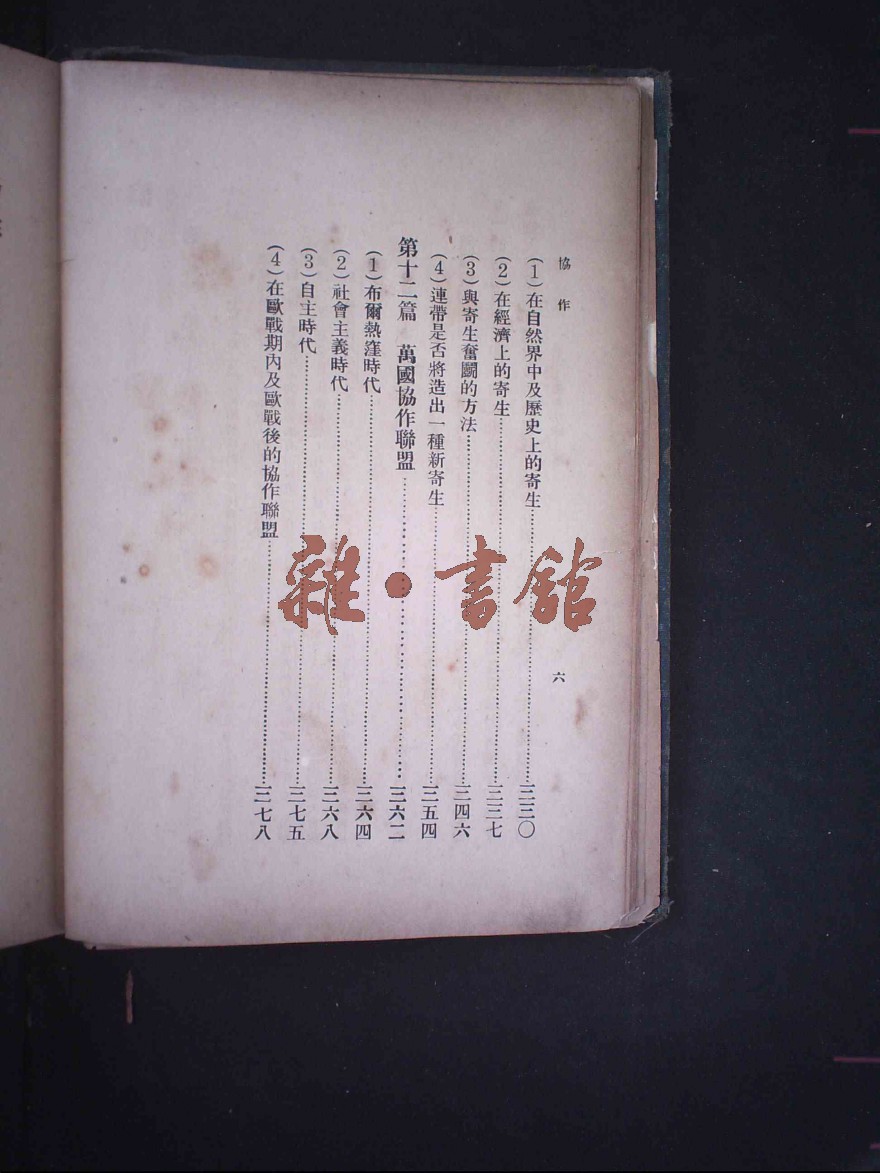 協作
六
（1）在自然界中及歷史上的寄生……三三〇
（2）在經濟上的寄生……三三七
（3）與寄生奮鬭的方法……三四六
（4）連帶是否將造出一種新寄生……三五四
第十二篇　萬國協作聯盟……三六二
（1）布爾熱窪時代……三六四
（2）社會主義時代……三六八
（3）自主時代……三七五
（4）在歐戰期內及歐戰後的協作聯盟……三七八
雜·書館